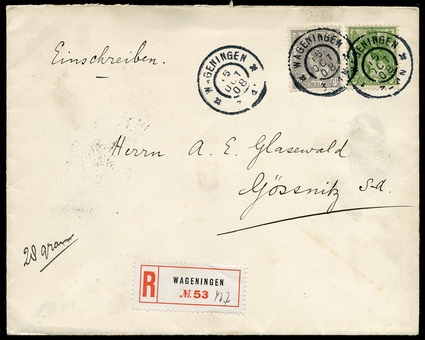 Einschreiben.
WAGENINGEN
5 OCT 08
WAGENINGEN
5 OCT 08
WAGENINGEN
Herrn A. E. Glasewald
Gössnitz S-A.
28 gram
R WAGENINGEN
№ 53